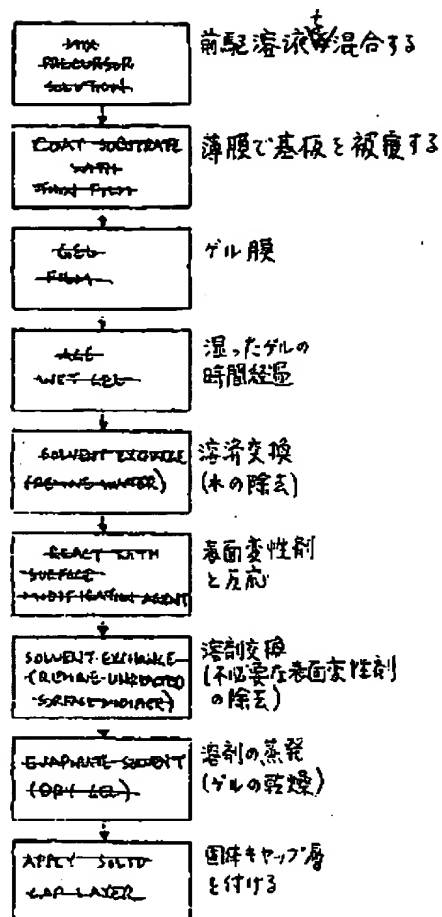 MIX
PRECURSOR
SOLUTION
前駆溶液を混合する
COAT SUBSTRATE
WITH
THIN FILM
薄膜で基板を被覆する
GEL
FILM
ゲル膜
AGE
WET GEL
湿ったゲルの
時間経過
SOLVENT EXCHANGE
(REMOVE WATER)
溶済交換
(水の除去)
REACT WITH
SURFACE
MODIFICATION AGENT
表面変性剤
と反応
SOLVENT EXCHANGE
(REMOVE UNREACTED
SURFACE MODIFIER)
溶剤交換
(不必要な表面変性剤
の除去)
EVAPORATE SOLVENT
(DRY GEL)
溶剤の蒸発
(ゲルの乾燥)
APPLY SOLID
CAP LAYER
固体キャップ層
を付ける